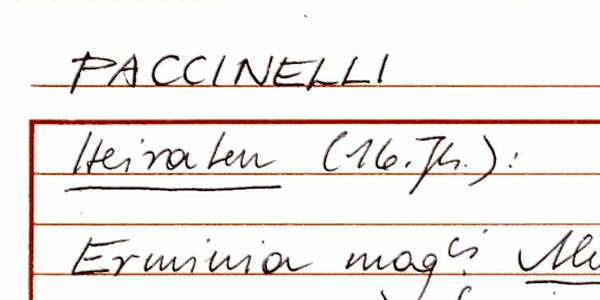 PACCINELLI
Heiraten (16. Jh.):
Erminia mag^ci